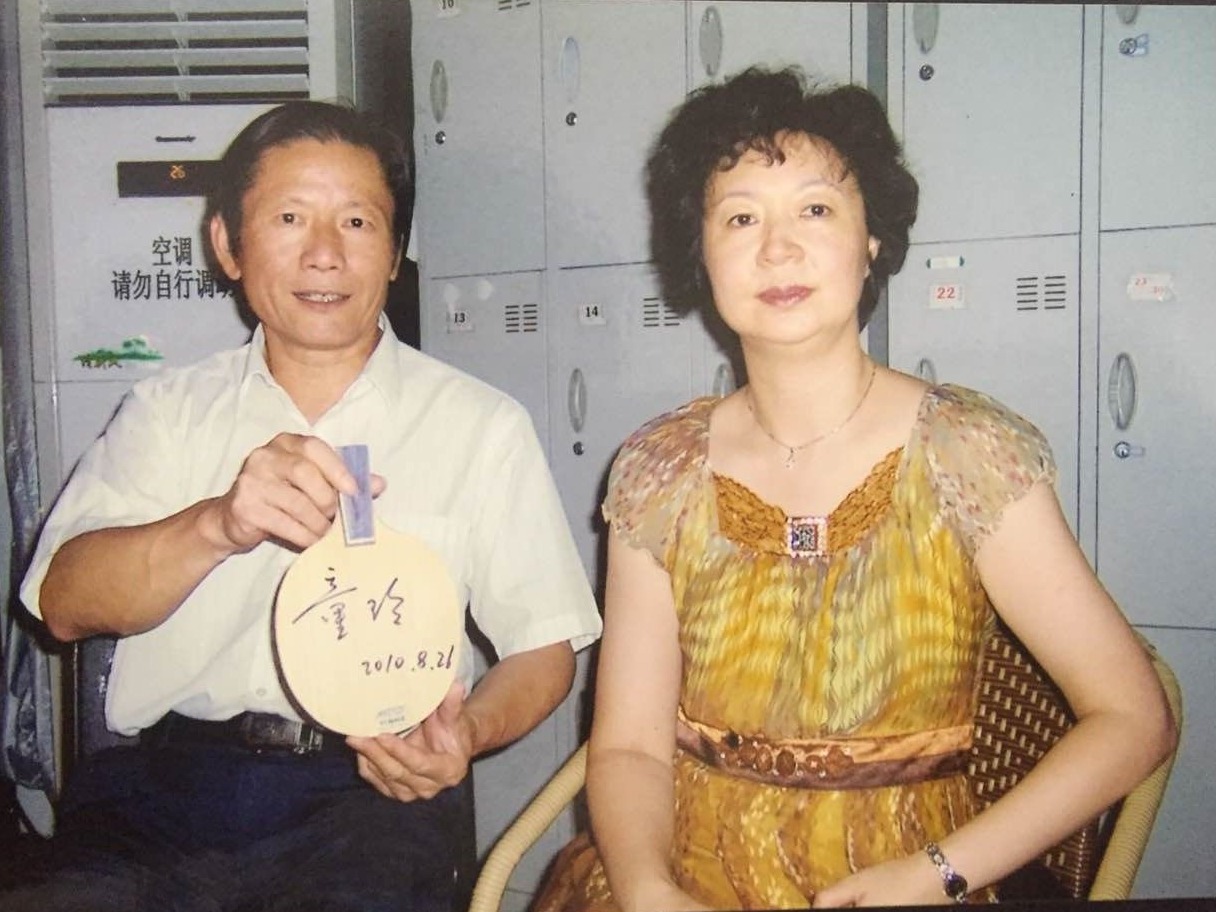 16
26
空调
请勿自行调
13
14
22
23
童玲
2010.8.21